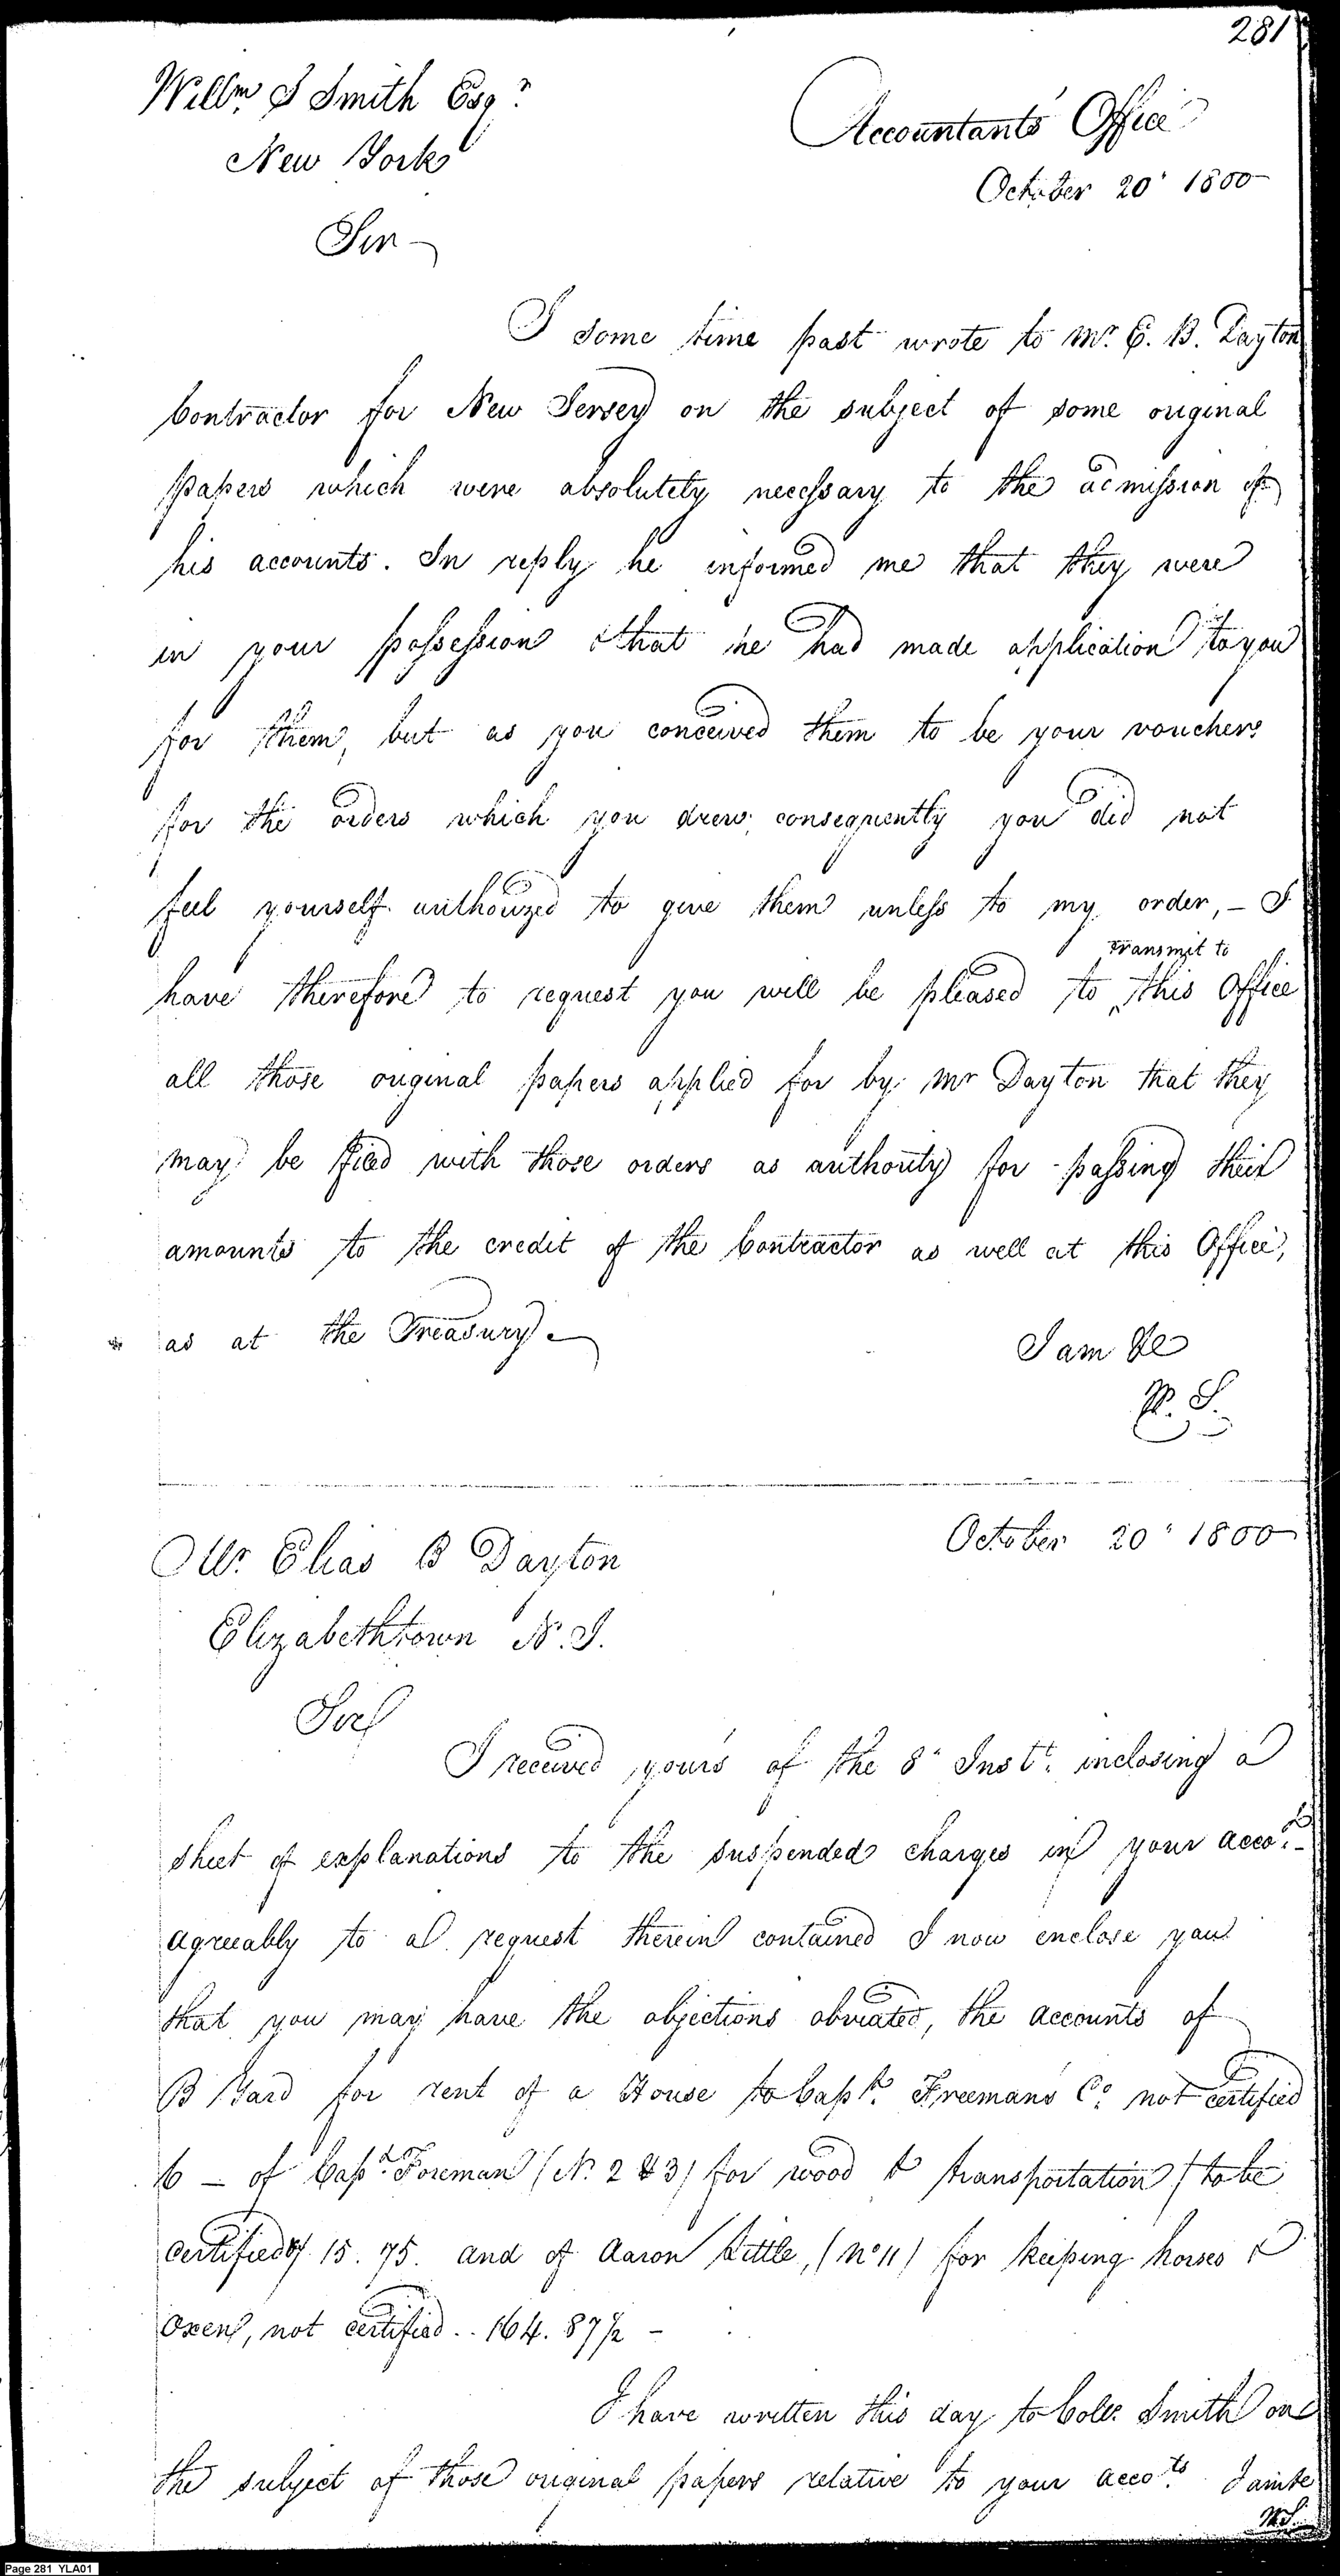 281
Willm S Smith Esqr
New York
Accountants Office
October 20th 1800
Sir
I some time past wrote to Mr. E. B. Dayton
Contractor for New Jersey on the subject of some original
papers which were absolutely necessary to the admission of
his accounts. In reply he informed me that they were
in your possession & that he had made application to you
for them, but as you conceived them to be your vouchers
for the orders which you drew, consequently you did not
feel yourself authorized to give them unless to my order, – I
transmit to
have therefore to request you will be pleased to ^ this Office
all those original papers applied for by Mr Dayton that they
may be filed with those orders as authority for passing their
amounts to the credit of the Contractor as well at this Office,
as at the Treasury.
I am &c
W. S.
October 20th 1800
Mr. Elias B Dayton
Elizabethtown N. J.
Sir
I received yours of the 8th Inst. inclosing a
sheet of explanations to the suspended charges in your accots.
agreeably to a request therein contained I now enclose you
that you may have the objections obviated, the accounts of
B Yard for rent of a House to Capt. Freemans Co. not certified
6 – of Capt. Foreman (No. 2 & 3) for wood & transportation (to be
certified) 15.75. and of Aaron Little, (No 11) for keeping horses &
Oxen, not certified.. 164.87½ –
I have written this day to Colo. Smith on
the subject of those original papers relative to your accots. I am &c
W. S.
Page 281 YLA01